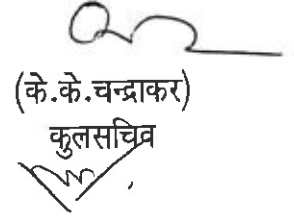 (के.के.चन्द्राकर)
कुलसचिव